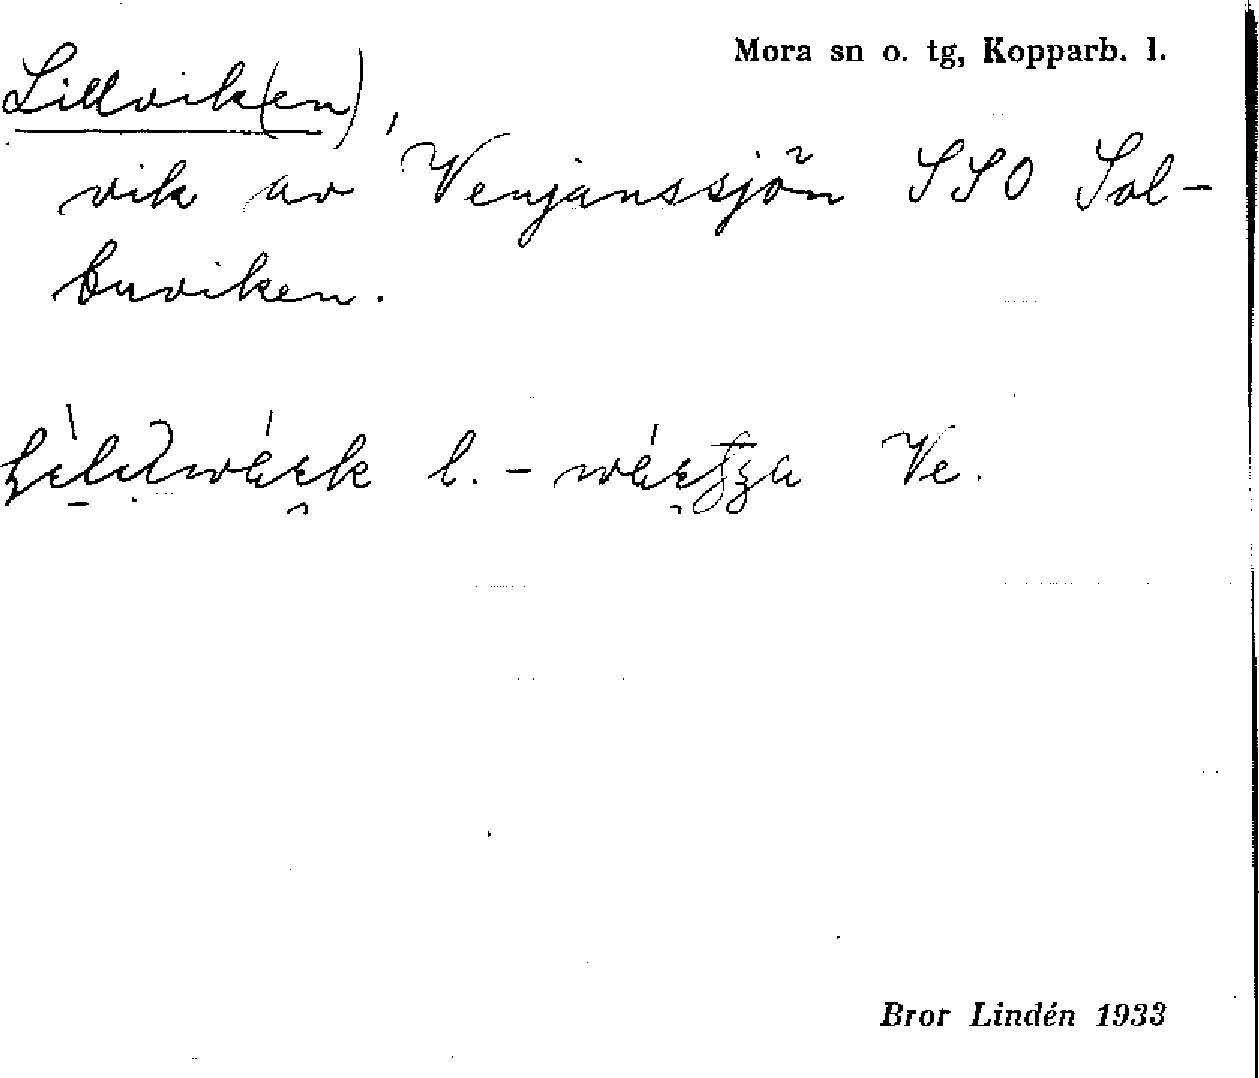 Mora sn o. tg, Kopparb. l.
Lillvik(en),
vik av Venjanssjön SSO Sal-
buviken.
l. - Ve.
Bror Lindén 1933